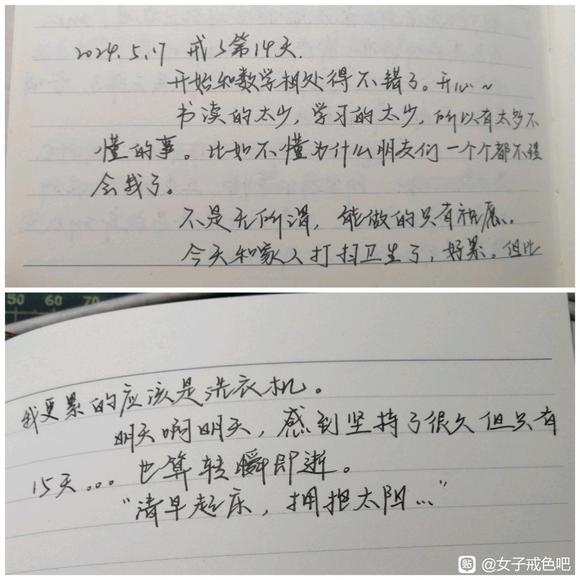 2024.5.17 戒s第14天.
开始和数学相处得不错了。开心~
书读的太少,学习的太少,所以有太多不
懂的事。比如不懂为什么朋友们一个个都不理
会我了。
不是无所谓,能做的只有祝愿。
今天和家人打扫卫生了,好累。但比
50 60 70
我更累的应该是洗衣机。
明天啊明天,感到坚持了很久但只有
15天... 也算转瞬即逝。
“清早起床,拥抱太阳...”
贴 @女子戒色吧